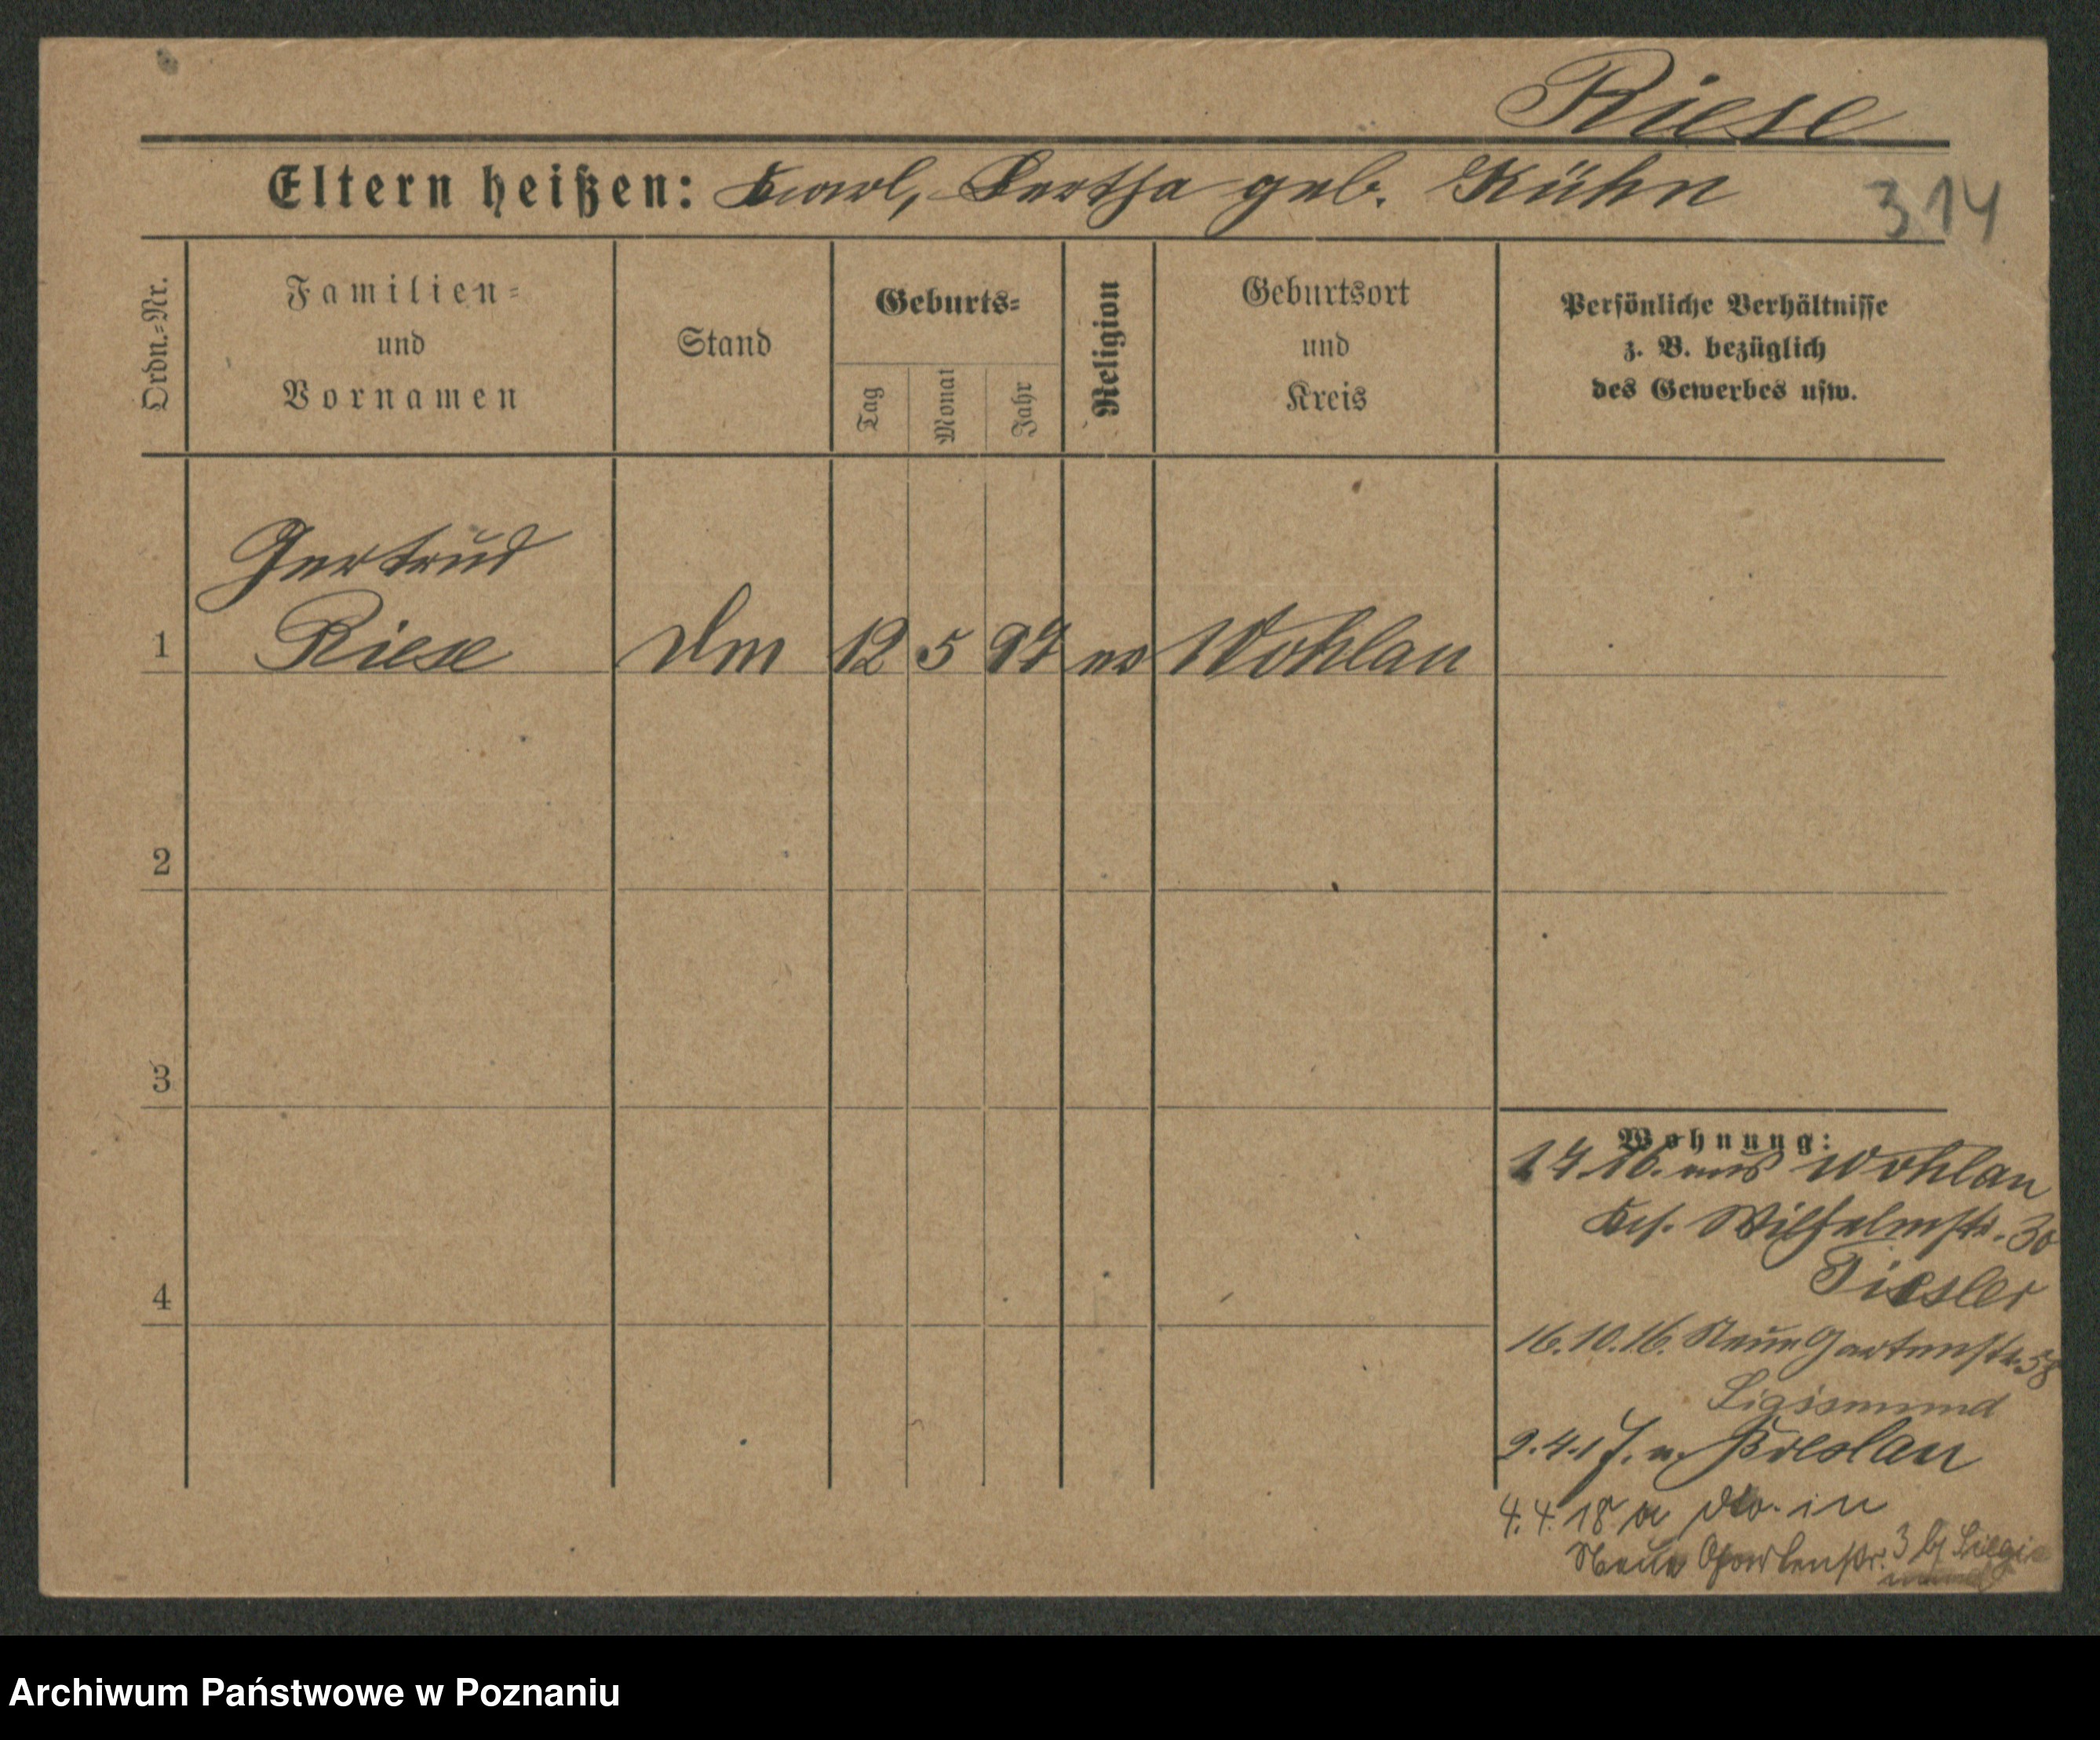 Riese
Eltern heißen: Karl, Bertha geb. Kühn
314
Ordn.-Nr.
Familien-
und
Vornamen
Stand
Geburts-
Tag
Monat
Jahr
Religion
Geburtsort
und
Kreis
Persönliche Verhältnisse
z. B. bezüglich
des Gewerbes usw.
Gertrud
1 Riese 12 5 97 ev Wohlau
2
3
4
Wohnung:
aus Wohlau
Wilhelmstr. 30
Tiesler
16.10.16. Neue Gartenstr. 58
Sigismund
9.4.17. n. Breslau
4.4.18 in
Neue Gartenstr. 3 b/
Archiwum Państwowe w Poznaniu